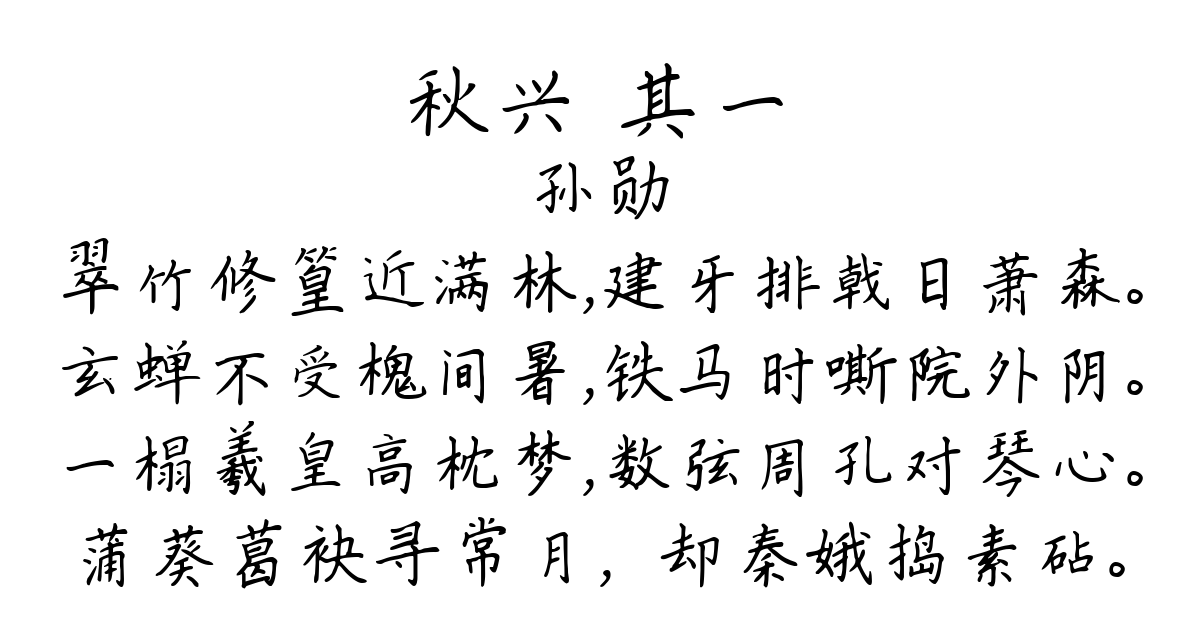 秋兴 其一
孙勋
翠竹修篁近满林,建牙排戟日萧森。
玄蝉不受槐间暑,铁马时嘶院外阴。
一榻羲皇高枕梦,数弦周孔对琴心。
蒲葵葛袂寻常月,却秦娥捣素砧。